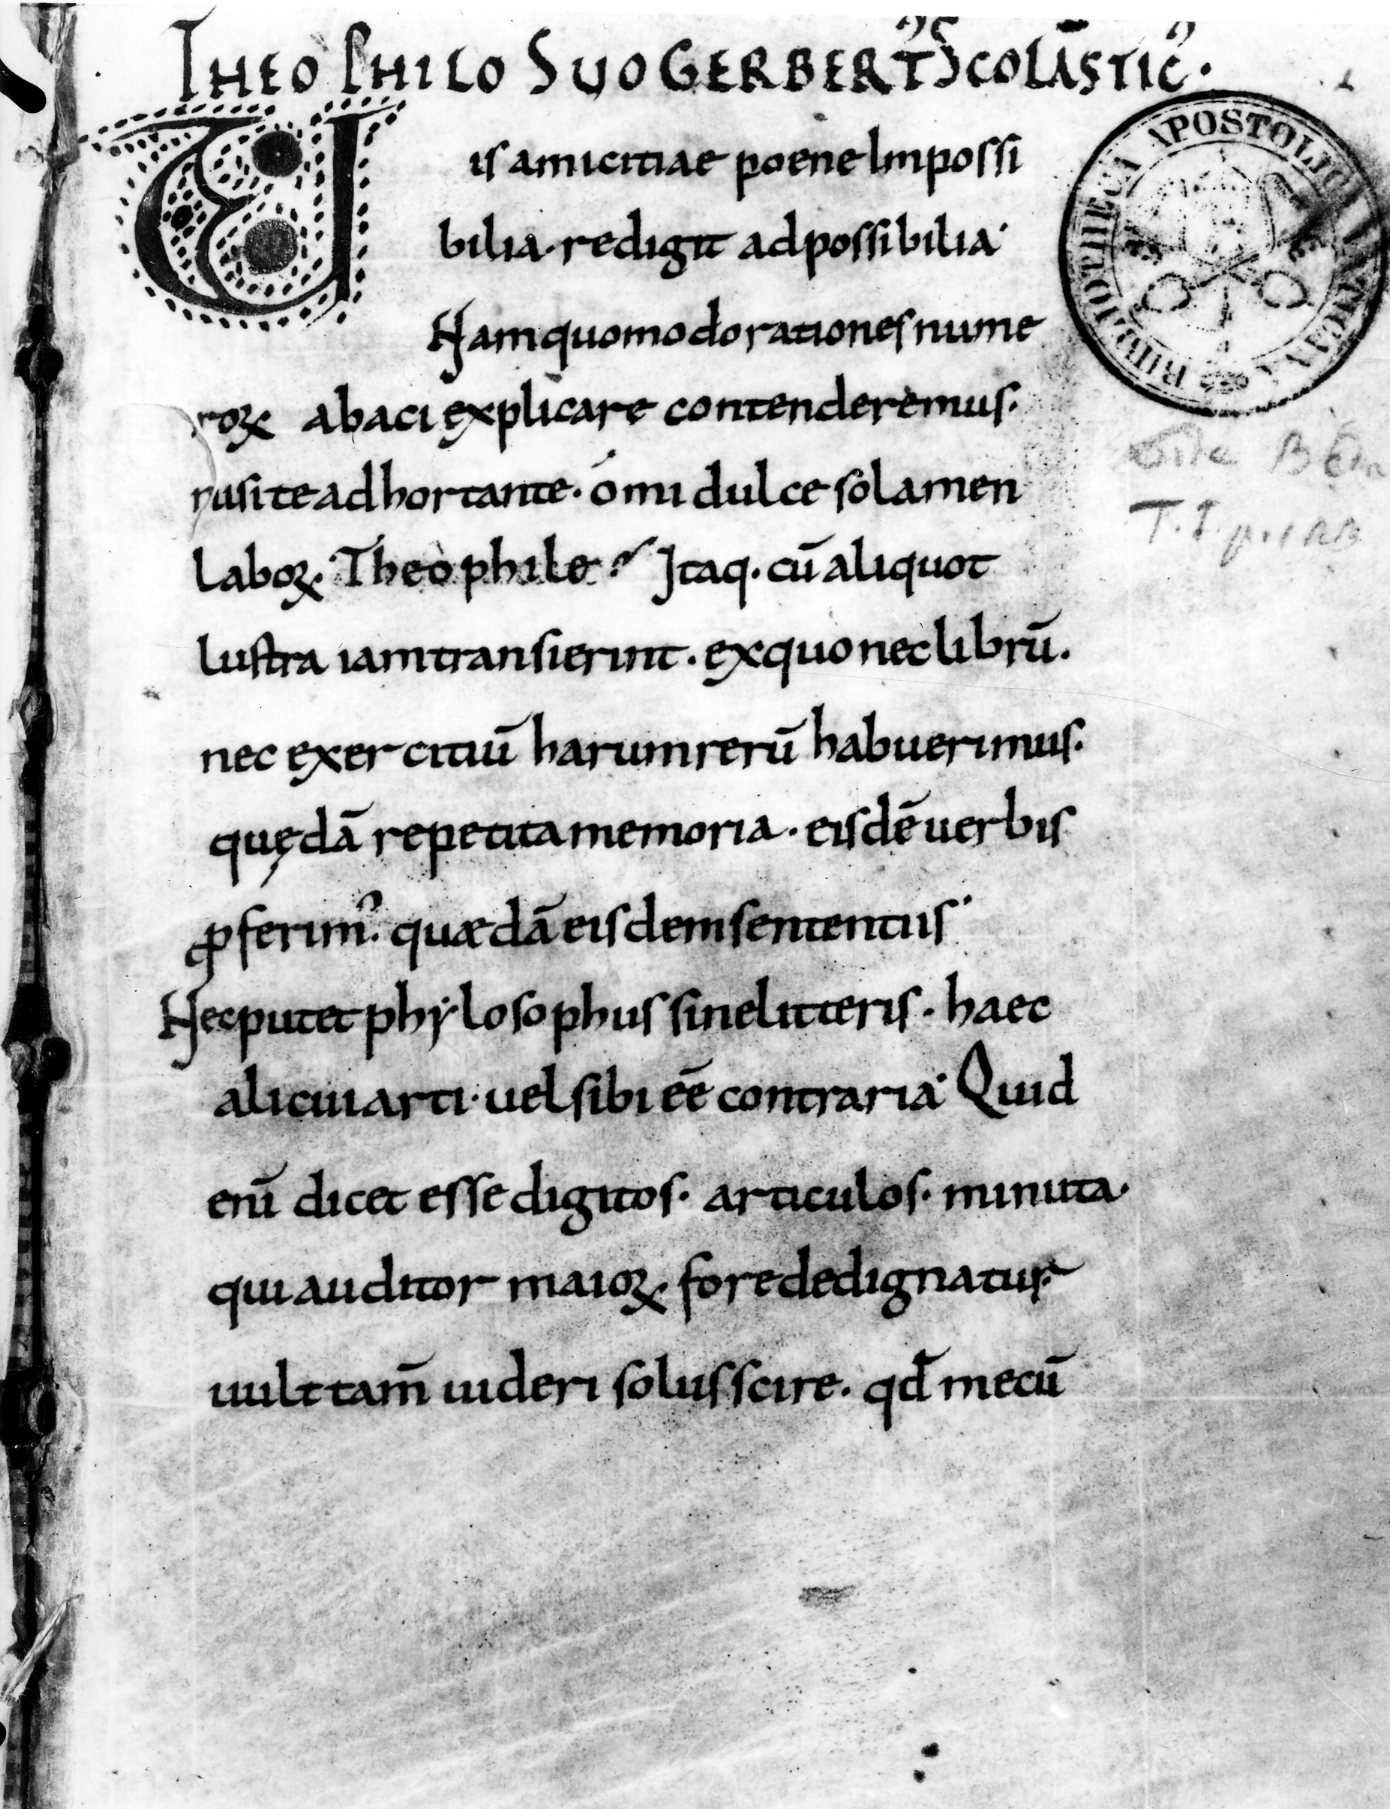 THEOPHILO SUO GERBERTꝰ SCOLASTICꝰ.
Vis amicitiae poene Impossi
bilia· redigit ad possibilia·
Nam quomodo rationes nume
roꝝ abaci explicare contenderemus·
nisi te adhortante· ó mi dulce solamen
laboꝝ· Theophile? Itaq· cū aliquot
lustra iam transierint· ex quo nec librū·
nec exercitiū harum rerū habuerimus·
quędā repetita memoria· eisdē uerbis
ꝓferimꝰ· quædā eisdem sententiis·
Nec putet phylosophus sine litteris· haec
alicui arti· uel sibi eē contraria· Quid
enī dicet esse digitos· articulos· minuta·
qui auditor maioꝝ fore dedignatur?
uult tam̄ uideri solus scire· qđ mecū
BIBLIOTHECA APOSTOLICA VATICANA